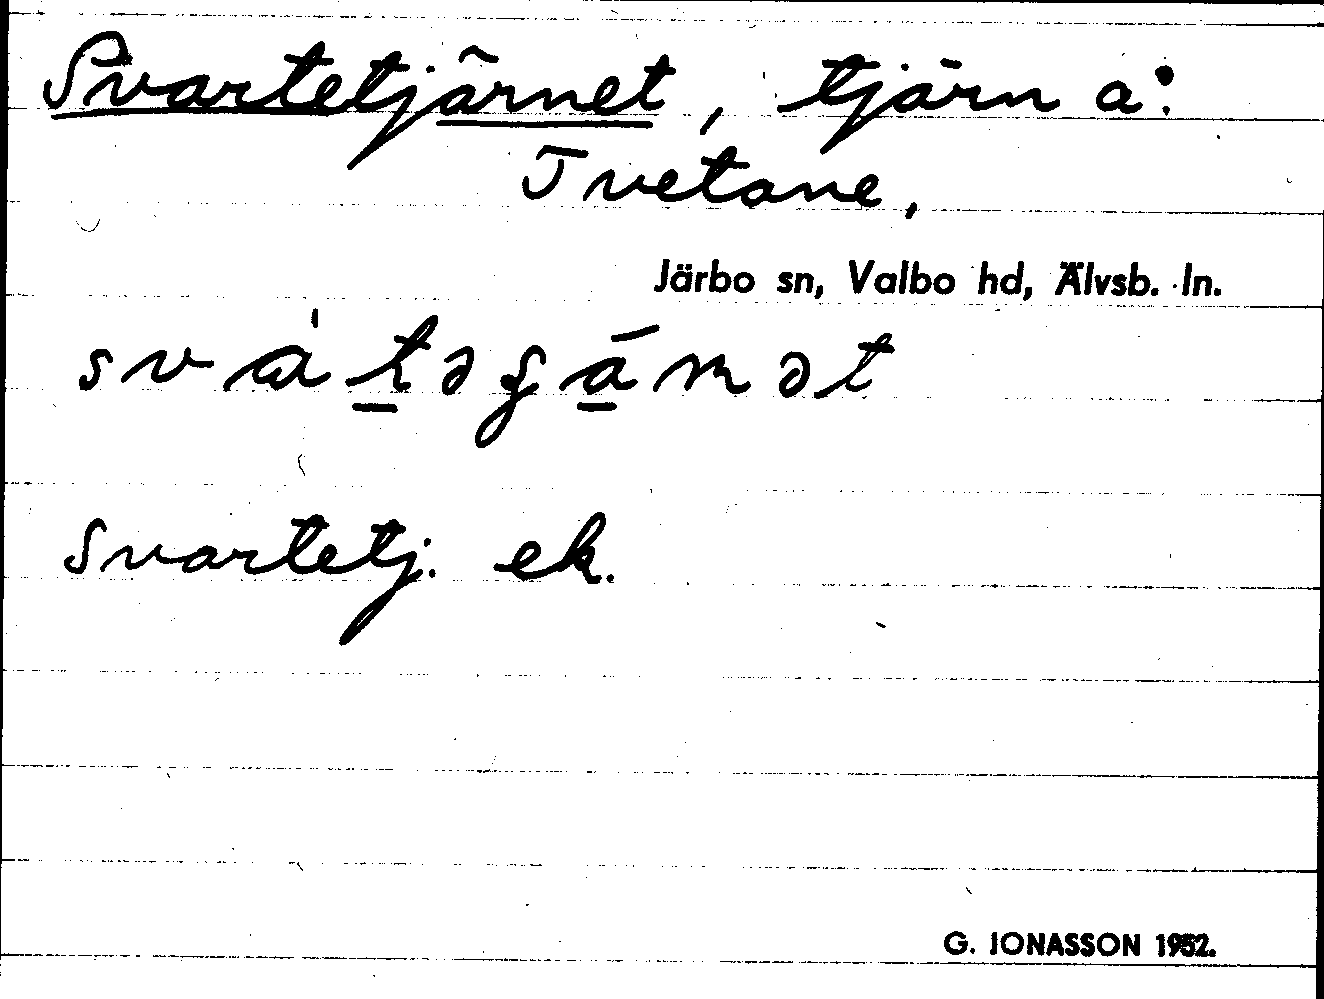 Svartetjärnet, tjärn å:
Tvetane,
Järbo sn, Valbo hd, Älvsb. ln.
Svartetj. ek.
G. JONASSON 1952.